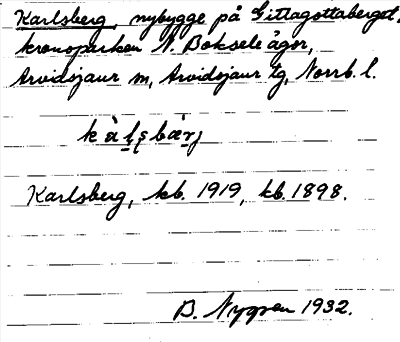 Karlsberg, nybygge på Gittagottaberget,
kronoparken N. Boksele ägor,
Arvidsjaur sn, Arvidsjaur tg, Norrb. l.
Karlsberg, kb. 1919, kb. 1898.
B. Nygren 1932.